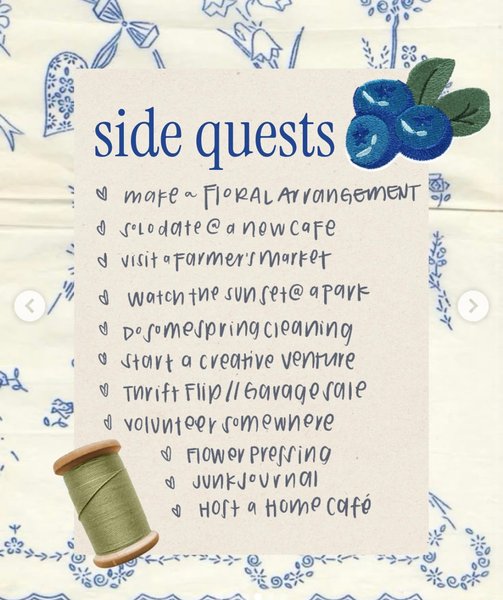 side quests
make a FLORAL ArrangEMENT
solo date @ a new cafe
visit a farmer's market
watch the sunset @ a park
Do some spring cleaning
start a creative venture
Thrift Flip // Garage sale
volunteer somewhere
Flower pressing
Junk Journal
Host a Home Café